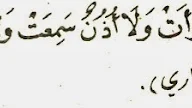 رَأَتْ وَلَا أُذُنٌ سَمِعَتْ وَ
اري).